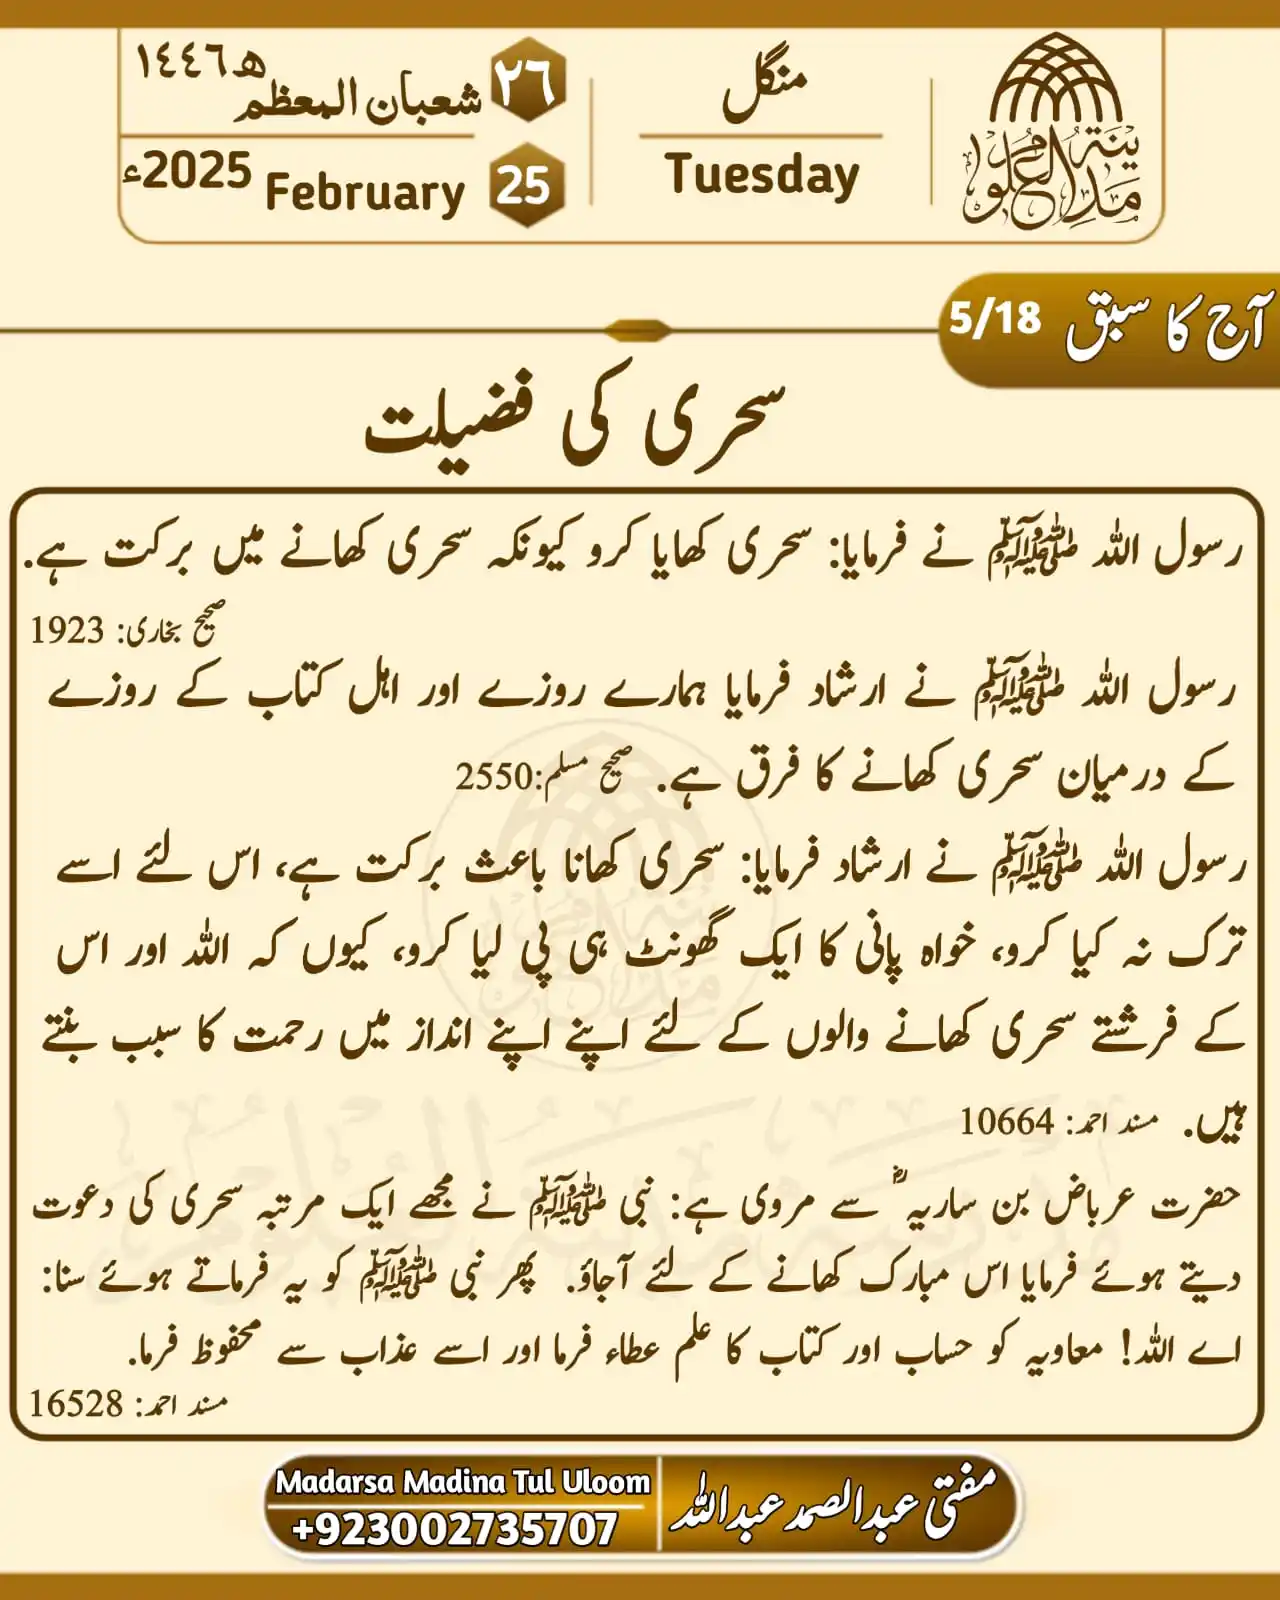 مدینۃ العلوم
منگل
Tuesday
٢٦ شعبان المعظم ١٤٤٦ھ
25 February 2025ء
آج کا سبق 5/18
سحری کی فضیلت
رسول اللہ ﷺ نے فرمایا: سحری کھایا کرو کیونکہ سحری کھانے میں برکت ہے.
صحیح بخاری: 1923
رسول اللہ ﷺ نے ارشاد فرمایا ہمارے روزے اور اہل کتاب کے روزے
کے درمیان سحری کھانے کا فرق ہے. صحیح مسلم:2550
رسول اللہ ﷺ نے ارشاد فرمایا: سحری کھانا باعث برکت ہے، اس لئے اسے
ترک نہ کیا کرو، خواہ پانی کا ایک گھونٹ ہی پی لیا کرو، کیوں کہ اللہ اور اس
کے فرشتے سحری کھانے والوں کے لئے اپنے اپنے انداز میں رحمت کا سبب بنتے
ہیں. مسند احمد: 10664
حضرت عرباض بن ساریہؓ سے مروی ہے: نبی ﷺ نے مجھے ایک مرتبہ سحری کی دعوت
دیتے ہوئے فرمایا اس مبارک کھانے کے لئے آجاؤ. پھر نبی ﷺ کو یہ فرماتے ہوئے سنا:
اے اللہ! معاویہ کو حساب اور کتاب کا علم عطاء فرما اور اسے عذاب سے محفوظ فرما.
مسند احمد: 16528
مفتی عبدالصمد عبداللہ
Madarsa Madina Tul Uloom
+923002735707